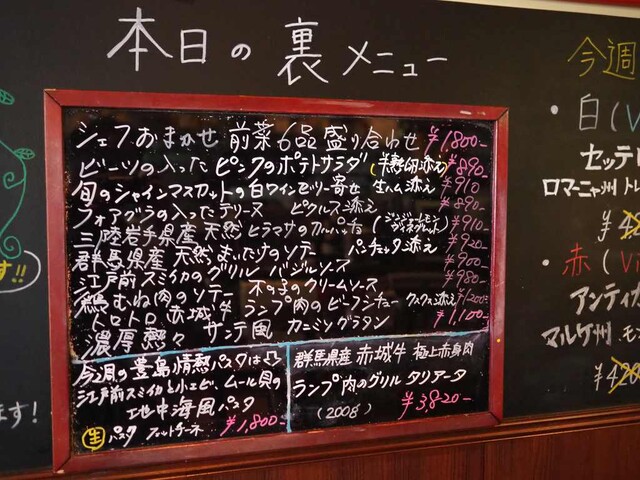 本日の裏メニュー
シェフおまかせ 前菜6品盛り合わせ ¥1,800-
ビーツの入ったピンクのポテトサラダ (半熟卵添え) ¥890-
旬のシャインマスカットの白ワインゼリー寄せ 生ハム添え ¥910
フォアグラの入ったテリーヌ ピクルス添え ¥890-
三陸岩手県産 天然ヒラマサのカルパッチョ ¥910
群馬県産 天然まいたけのソテー パンチェッタ添え ¥920
江戸前スミイカのグリル バジルソース ¥900-
鶏むね肉のソテー 木の子のクリームソース ¥980-
トロトロ 赤城牛 ランプ肉のビーフシチュー クスクス添え ¥1200-
濃厚熱々 サンテ風 カニミソグラタン ¥1,100-
今週の豊島情熱パスタは
江戸前スミイカと小エビ、ムール貝の
地中海風パスタ
生 パスタ フェットチーネ ¥1,800-
群馬県産 赤城牛 極上赤身肉
ランプ肉のグリル タリアータ
(200g) ¥3,820-
今週
・白(Vi
セッテ
ロマーニャ州 ト
・赤(Vi
アンティ
マルケ州 モン
す!!
ます!